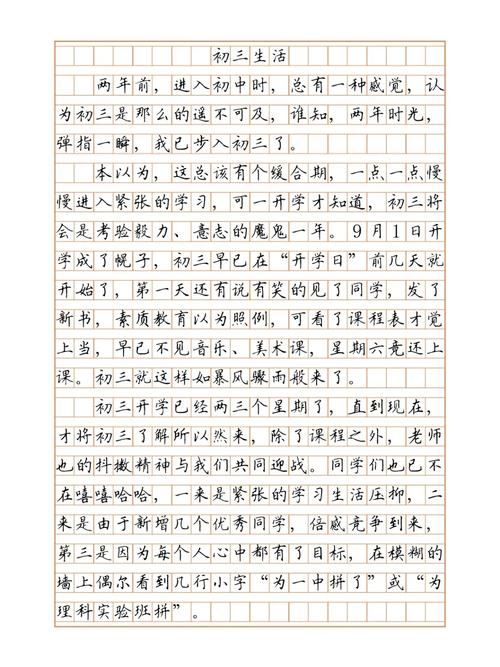 初三生活
两年前，进入初中时，总有一种感觉，认
为初三是那么的遥不可及，谁知，两年时光，
弹指一瞬，我已步入初三了。
本以为，这总该有个缓合期，一点一点慢
慢进入紧张的学习，可一开学才知道，初三将
会是考验毅力、意志的魔鬼一年。9月1日开
学成了幌子，初三早已在“开学日”前几天就
开始了，第一天还有说有笑的见了同学，发了
新书，素质教育以为照例，可看了课程表才觉
上当，早已不见音乐、美术课，星期六竟还上
课。初三就这样如暴风骤雨般来了。
初三开学已经两三个星期了，直到现在，
才将初三了解所以然来，除了课程之外，老师
也的抖擞精神与我们共同迎战。同学们也已不
在嘻嘻哈哈，一来是紧张的学习生活压抑，二
来是由于新增几个优秀同学，倍感竞争到来，
第三是因为每个人心中都有了目标，在模糊的
墙上偶尔看到几行小字“为一中拼了”或“为
理科实验班拼”。